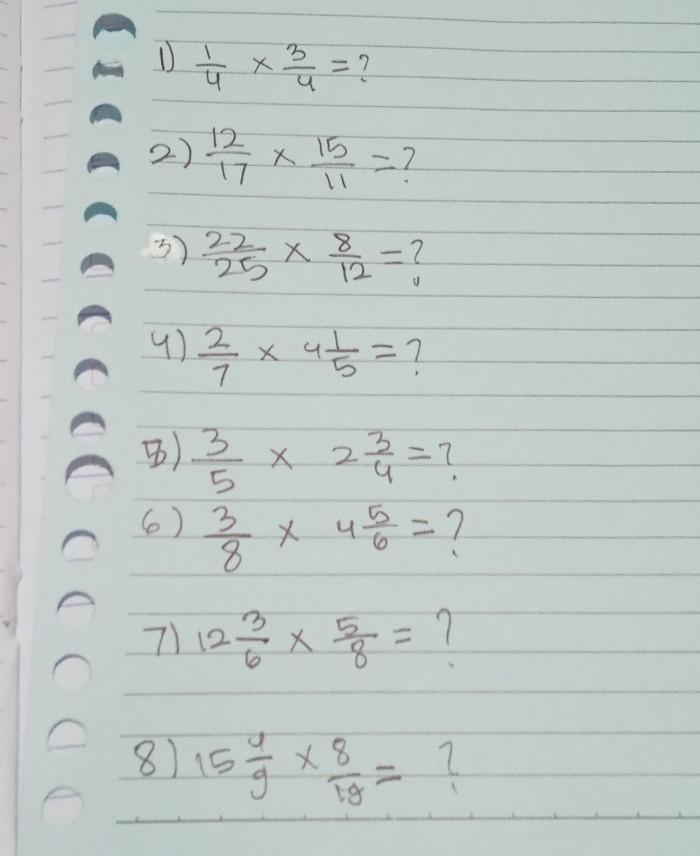 1) 1/4 × 3/4 = ?
2) 12/17 × 15/11 = ?
3) 22/25 × 8/12 = ?
4) 2/7 × 4 1/5 = ?
5) 3/5 × 2 3/4 = ?
6) 3/8 × 4 5/6 = ?
7) 12 3/6 × 5/8 = ?
8) 15 4/9 × 8/ = ?